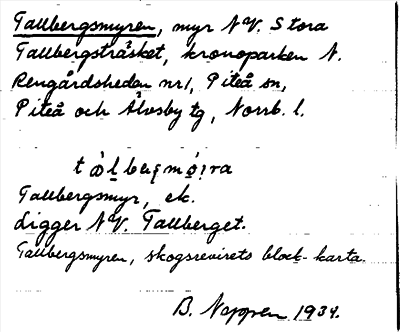 Tallbergsmyren, myr N.V. Stora
Tallbergsträsket, kronoparken N.
Rengårdsheden nr 1, Piteå sn,
Piteå och Älvsby tg, Norrb. l.
Tallbergsmyr, ek.
Ligger N.V. Tallberget.
Tallbergsmyren, skogsrevirets block-karta.
B. 1934.